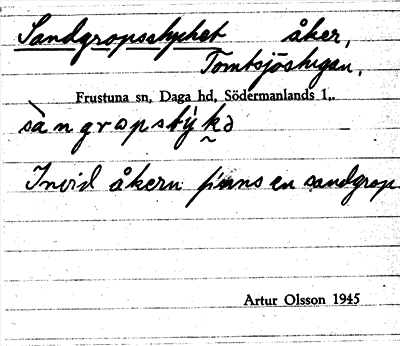 Sandgropsstycket åker,
Tombsjöstugan,
Frustuna sn, Daga hd, Södermanlands l,.
sàngropstỳkə
Invid åkern finns en sandgrop
Artur Olsson 1945